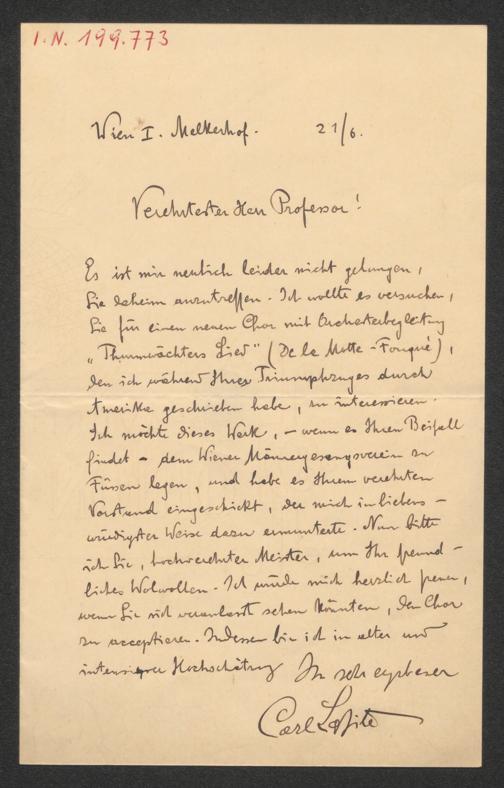 I.N. 199.773
Wien I. Melkerhof. 21/6.
Verehrtester Herr Professor!
Es ist mir neulich leider nicht gelungen,
Sie daheim anzutreffen. Ich wollte es versuchen,
Sie für einen neuen Chor mit Orchesterbegleitung
„Thurmwächters Lied" (De la Motte-Fouqué),
den ich während Ihres Triumphzuges durch
Amerika geschrieben habe, zu interessieren.
Ich möchte dieses Werk, – wenn es Ihren Beifall
findet – dem Wiener Männergesangverein zu
Füssen legen, und habe es Ihrem verehrten
Vorstand eingeschickt, der mich in liebens-
würdigster Weise dazu ermunterte. Nun bitte
ich Sie, hochverehrter Meister, um Ihr freund-
liches Wolwollen. Ich würde mich herzlich freuen,
wenn Sie sich veranlasst sehen könnten, den Chor
zu acceptieren. Indessen bin ich in alter und
intensiver Hochschätzung Ihr sehr ergebener
Carl Lafite